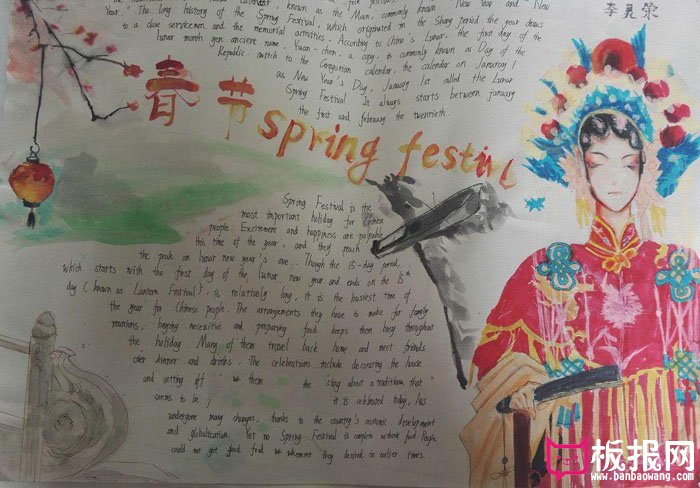 calendar, known as the Moon, commonly known " New Year" and "New
Year." The long history of the Spring Festival, which originated in the Shang period the year draws
to a close servicemen and the memorial activities. According to China's Lunar, the first day of the
lunar month yen anciene name, Yuan-chen, a copy, is commonly known as Day of the
Republic. switch to the Gregorian calendar, the calendar on January 1
as New Year's Day, January 1st alled the Lunar
Spring Festival. It always starts between january
the first and february the twentieth.
李
荣
春节 spring festival
Spring Festival is the
most important holiday for Chinese
people. Excitement and happiness are palpable
this time of the year, and they reach
the peak on lunar new year's eve... Though the 15-day period,
which starts with the first day of the lunar new year and ends on the 15th
day (known as Lantern Festival), is relatively long, it is the busiest time of
the year for Chinese people. The arrangements they have to make for family
reunions, buying necessities and preparing food keeps them busy throughout
the holiday. Many of them travel back home and meet friends
over dinner and drinks. The celebrations include decorating the house
and setting off we them the about a tradition that
seems to be it is celebrated today, has
undergone many changes, thanks to the country's economic development
and globalization. Yet no Spring Festival is complete without food. People
could not get food we whenever they desired in earlier times.
板报网
www.banbaowang.com